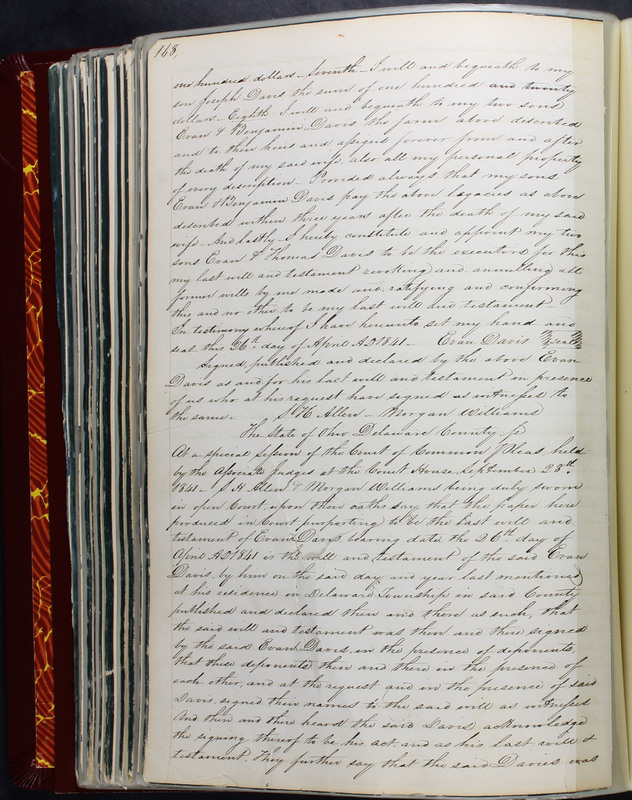 168,
one hundred dollars - Seventh - I will and bequeath to my
son Joseph Davis the sum of one hundred and twenty
dollars - Eighth I will and bequeath to my two sons
Evan & Benjamin Davis the farm above described
and to their heirs and assigns forever from and after
the death of my said wife also all my personal property
of every description - Provided always that my sons
Evan & Benjamin Davis pay the above legacies as above
described within three years after the death of my said
wife - And lastly - I hereby constitute and appoint my two
sons Evan & Thomas Davis to be the executors for this
my last will and testament revoking and annulling all
former wills by me made and ratifying and confirming
this and no other to be my last will and testament
In testimony whereof I have hereunto set my hand and
seal this 26th day of April AD 1841 - Evan Davis Seal
Signed, published and declared by the above Evan
Davis as and for his last will and testament in presence
of us who at his request have signed as witnesses to
the same - S H Allen - Morgan Williams
The State of Ohio Delaware County Ss
At a special Session of the Court of Common Pleas, held
by the Associate Judges at the Court House September 28th
1841 - S. H Allen & Morgan Williams being duly sworn
in open Court, upon their oaths say, that the paper here
produced in Court purporting to be the last will and
testament of Evan Davis, bearing date the 26th day of
April AD 1841 is the will and testament of the said Evan
Davis, by him on the said day and year last mentioned
at his residence in Delaware Township in said County
published and declared then and there as such, that
the said will and testament was then and there signed
by the said Evan Davis in the presence of deponents,
that these deponents then and there in the presence of
each other, and at the request and in the presence of said
Davis signed their names to the said will as witnesses
And then and there heard the said Davis acknowledge
the signing thereof to be his act and as his last will &
testament. They further say that the said Davies was